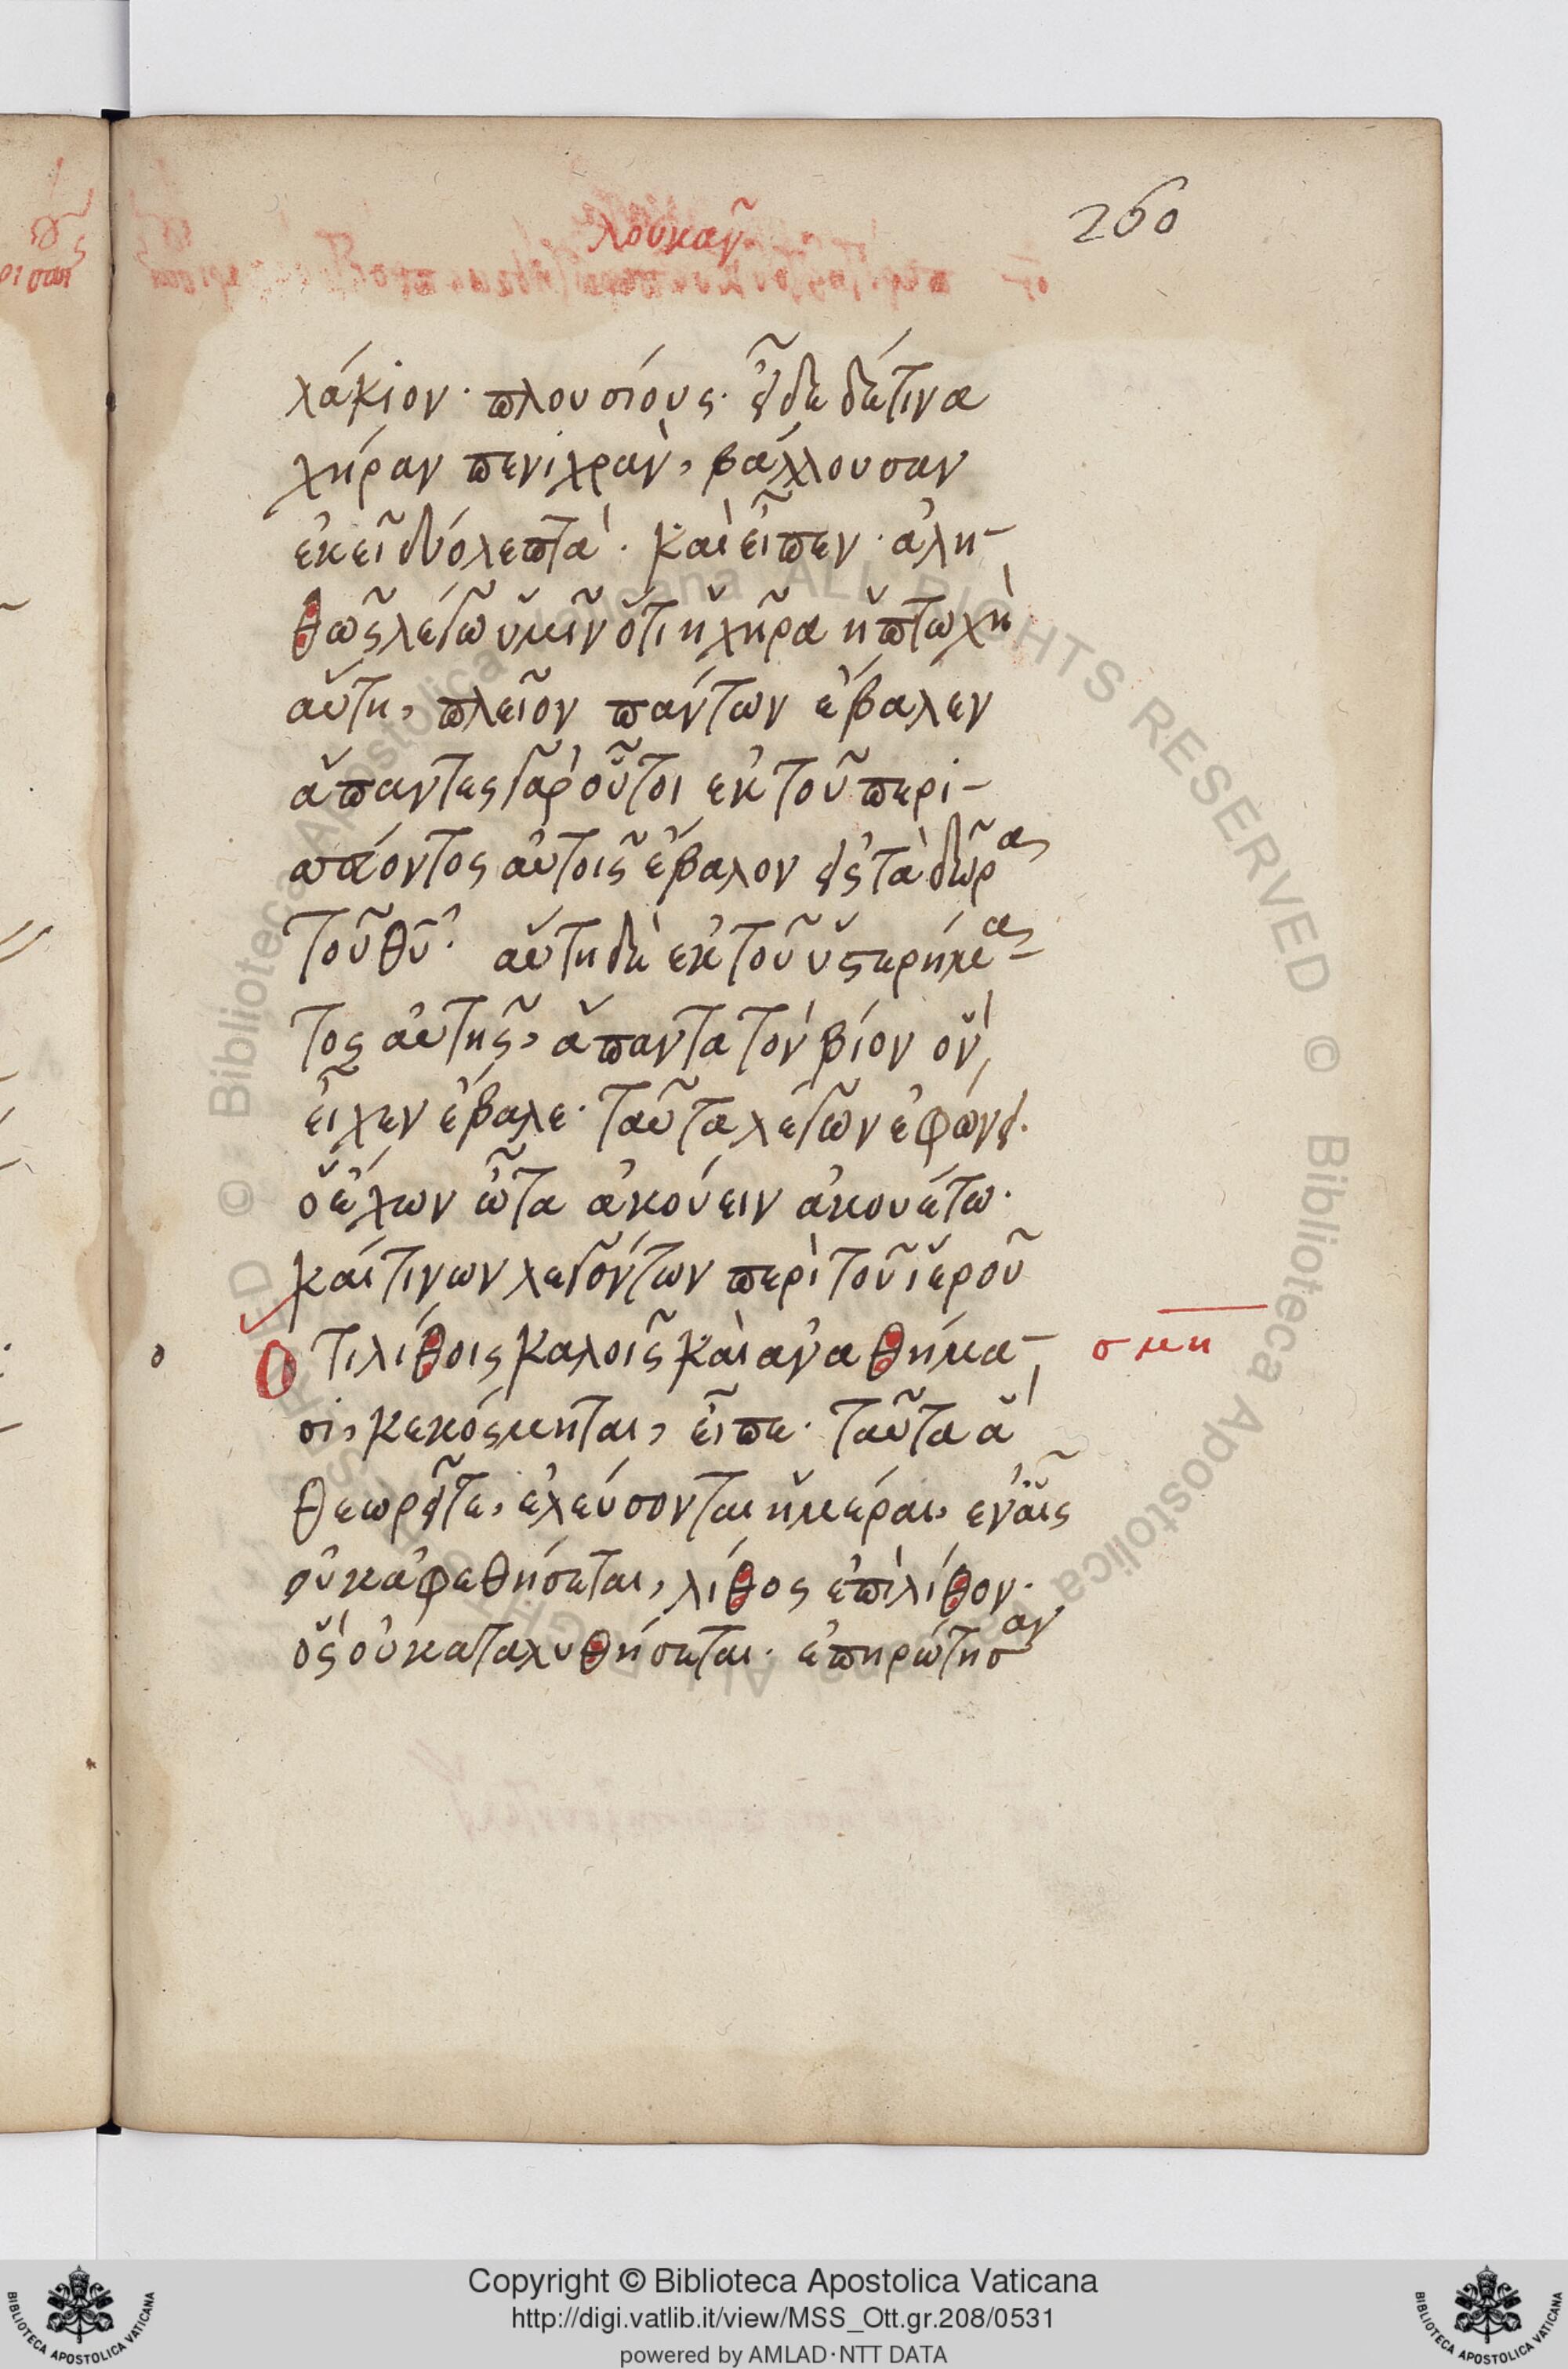 λουκαν
260
λάκιον· πλουσίους· εἶδε δέ τινα
χήραν πενιχρὰν, βάλλουσαν
ἐκεῖ δύο λεπτά· καὶ εἶπεν· ἀλη-
θῶς λέγω ὑμῖν ὅτι ἡ χῆρα ἡ πτωχὴ
αὕτη, πλεῖον πάντων ἔβαλεν
ἅπαντες γὰρ οὗτοι ἐκ τοῦ περι-
σσέοντος αὐτοῖς ἔβαλον εἰς τὰ δῶρα
τοῦ θῦ· αὕτη δὲ ἐκ τοῦ ὑστερήμα-
τος αὐτῆς, ἅπαντα τὸν βίον ὃν
εἶχεν ἔβαλε· ταῦτα λέγων ἐφώνει·
ὁ ἔχων ὦτα ἀκούειν ἀκουέτω·
καί τινων λεγόντων περὶ τοῦ ἱεροῦ
ο
Ὅτι λίθοις καλοῖς καὶ ἀναθήμα-
σμη
σι, κεκόσμηται, εἶπε· ταῦτα ἃ
θεωρεῖτε, ἐλεύσονται ἡμέραι, ἐν αἷς
οὐκ ἀφεθήσεται, λίθος ἐπὶ λίθον·
ὃς οὐ καταλυθήσεται· ἐπηρώτησαν
© Biblioteca Apostolica Vaticana ALL RIGHTS RESERVED © Biblioteca Apostolica Vaticana ALL RIGHTS RESERVED
Copyright © Biblioteca Apostolica Vaticana
http://digi.vatlib.it/view/MSS_Ott.gr.208/0531
powered by AMLAD·NTT DATA
BIBLIOTECA APOSTOLICA VATICANA
BIBLIOTECA APOSTOLICA VATICANA